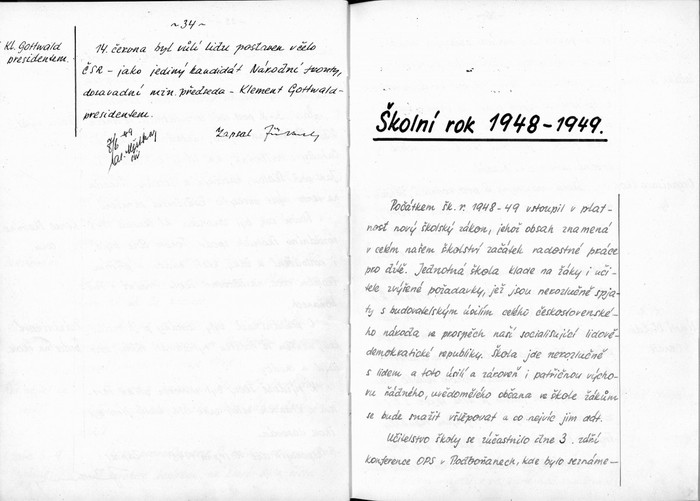 ~ 34 ~
Kl. Gottwald
presidentem.
14. června byl vůlí lidu postaven v čelo
ČSR - jako jediný kandidát Národní fronty,
dosavadní min. předseda - Klement Gottwald -
presidentem.
Zapsal
Školní rok 1948-1949.
Počátkem šk. r. 1948-49 vstoupil v plat-
nost nový školský zákon, jehož obsah znamená
v celém našem školství začátek radostné práce
pro dítě. Jednotná škola klade na žáky i uči-
tele zvýšené požadavky, jež jsou nerozlučně spja-
ty s budovatelským úsilím celého československé-
ho národa ve prospěch naší socialisující lidově-
demokratické republiky. Škola jde nerozlučně
s lidem a toto úsilí a zároveň i patřičnou výcho-
vu řádného, uvědomělého občana ve škole žákům
se bude snažit vštěpovat a co nejvíc jim dát.
Učitelstvo školy se zúčastnilo dne 3. září
konference OPS v Podbořanech, kde bylo seznáme-